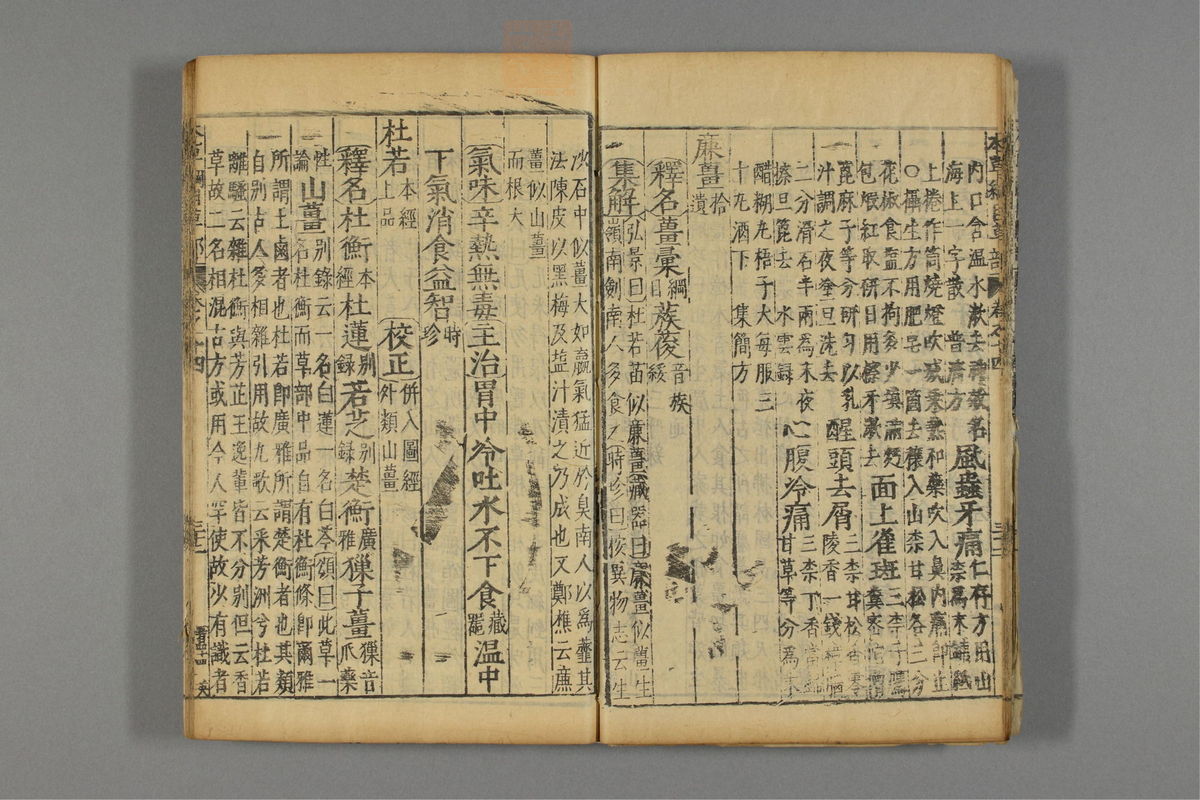 內口含温水漱去神效名風蟲牙痛仁存方用山柰爲末鋪紙
海上一字散 普濟方
上捲作筒燒燈吹滅乘熱和藥吹入鼻內痛即止
○攝生方用肥皂一箇去穰入山柰甘松各三分
花椒食鹽不拘多少填滿
包煅紅取研日用擦牙漱去面上雀斑三柰子鷹
蓖麻子等分研勻以乳
汁調之夜塗旦洗去醒頭去屑三柰甘松香零陵香一錢
二分滑石半兩爲末夜
擦旦篦去 水雲録心腹冷痛三柰丁香當歸甘草等分爲末
醋糊丸梧子大每服三
十丸酒下 集簡方
廉薑拾遺
釋名薑彙綱目蔟葰音族綏
集解弘景曰杜若苗似廉薑藏器曰廉薑似薑生
嶺南劍南人多食之時珍曰按異物志云生
沙石中似薑大如蠃氣猛近於臭南人以爲虀其
法陳皮以黑梅及盐汁漬之乃成也又鄭樵云廉
薑似山薑
而根大
氣味辛熱無毒主治胃中冷吐水不下食藏器温中
下氣消食益智時珍
杜若本經上品 校正併入圖經外類山薑
釋名杜衡本經杜蓮别録若芝别録楚衡廣雅𤢪子薑𤢪音爪藥
性論山薑别録云一名白蓮一名白芩頌曰此草一
名杜衡而草部中品自有杜衡條即爾雅
所謂土鹵者也杜若即廣雅所謂楚衡者也其類
自别古人多相雜引用故九歌云采芳洲兮杜若
離騷云雜杜衡與芳芷王逸輩皆不分别但云香
草故二名相混古方或用今人罕使故少有識者